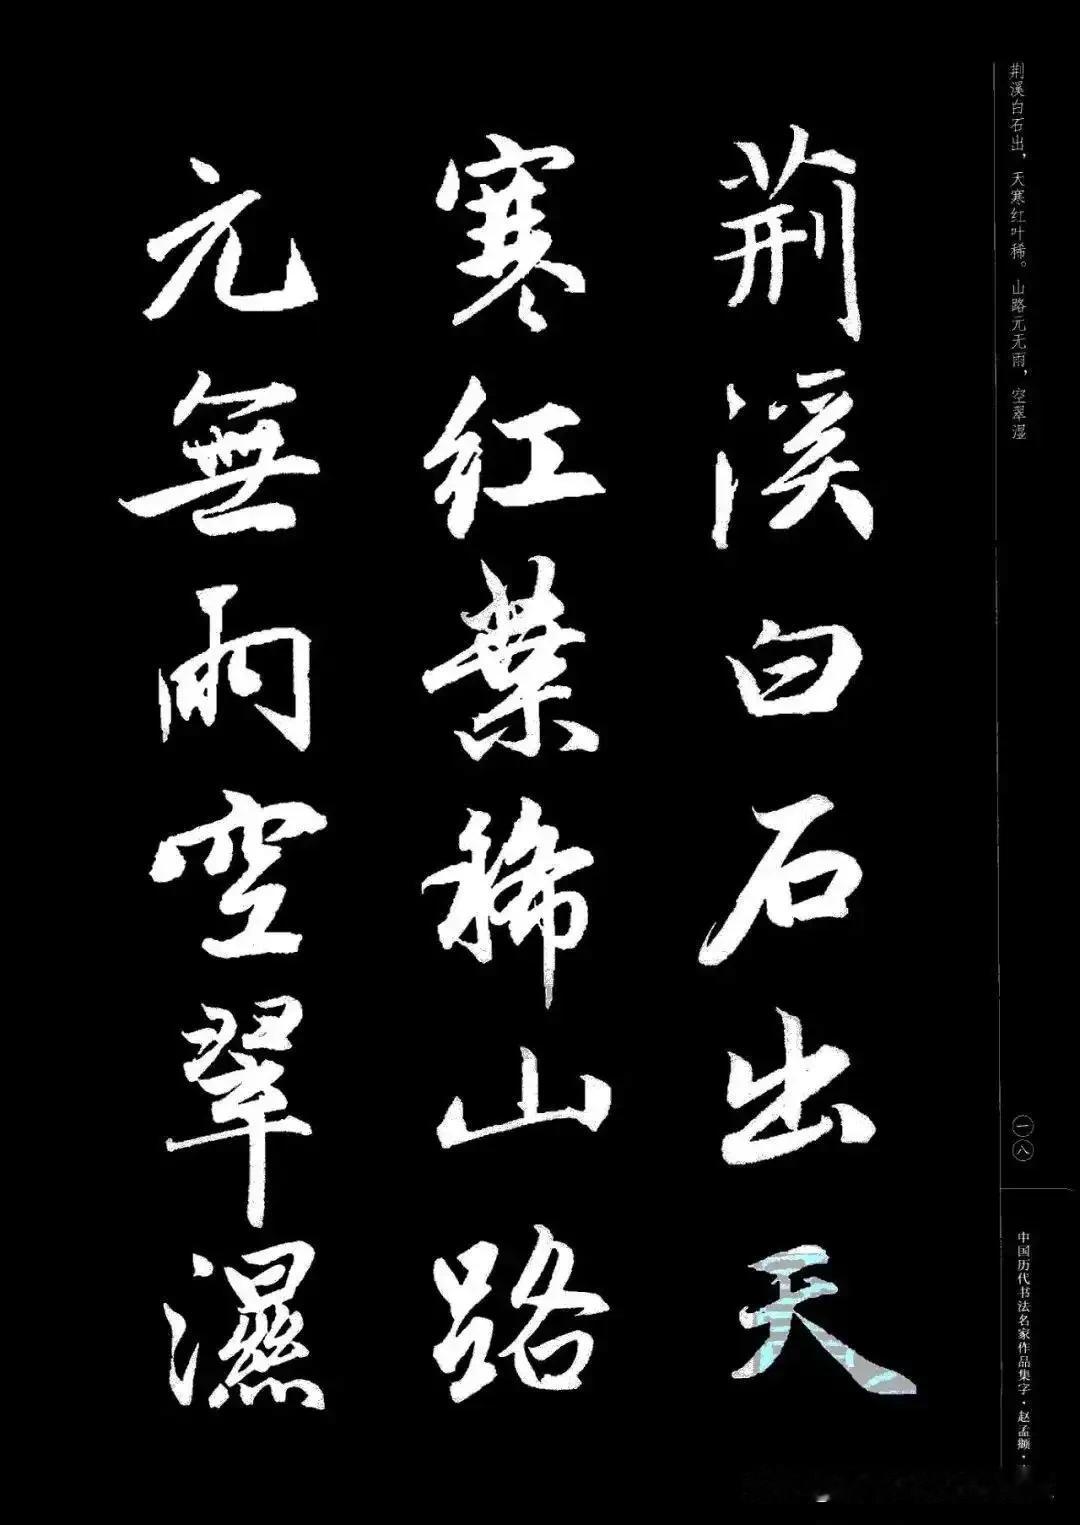 荆溪白石出，天寒红叶稀。山路元无雨，空翠湿
荆溪白石出天
寒紅葉稀山路
元無雨空翠濕
一八
中国历代书法名家作品集字·赵孟頫·